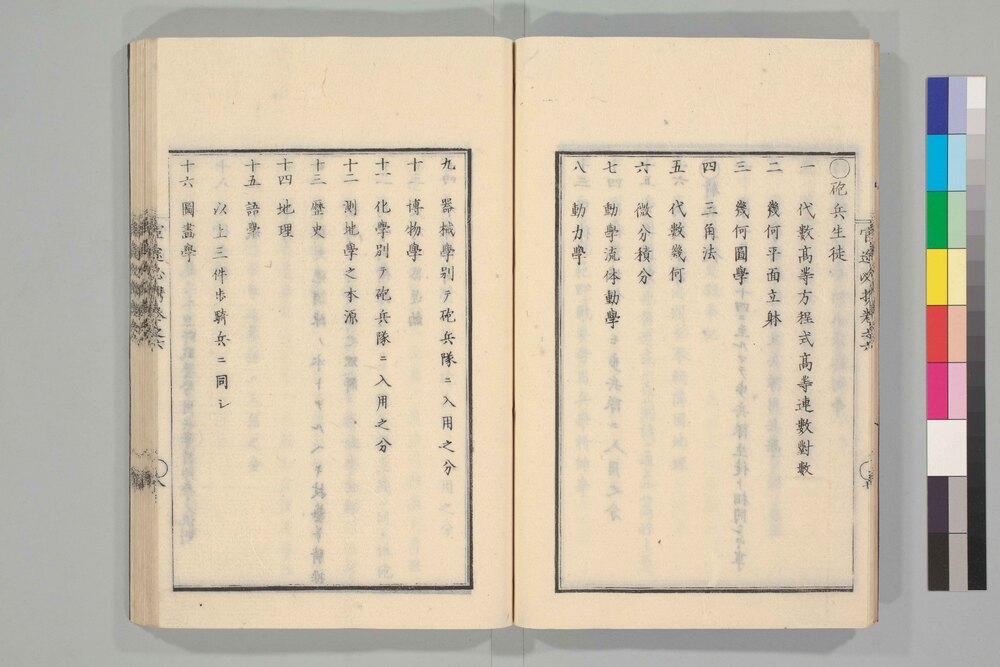 ◯砲兵生徒
一 代數高等方程式高等連數對數
二 幾何平面立躰
三 幾何圖學
四 三角法
五 代數幾何
六 微分積分
七 動學流体動學
八 動力學
九 器械學別テ砲兵隊ニ入用之分
十 博物學
十一 化學別テ砲兵隊ニ入用之分
十二 測地學之本源
十三 歴史
十四 地理
十五 語學
以上三件歩騎兵ニ同シ
十六 圖畫學